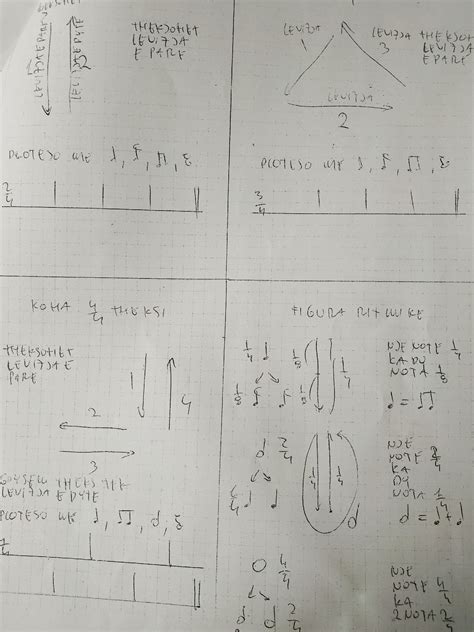 THEKSOHET
LEVIZJA
E PARE
PLOTESO ME
2/4
LEVIZJA
LEVIZJA
3
THEKSOHET
LEVIZJA
E PARE
LEVIZJA
2
PLOTESO ME
3/4
KOHA 4/4 THEKSI
THEKSOHET
LEVIZJA E
PARE
1
4
2
3
THEKSHET
LEVIZJA E DYTE
PLOTESO ME
FIGURA RITMIKE
1/4
1/8
1/8
1/4
NJE NOTE 1/4
KA DY
NOTA 1/8
2/4
1/4
1/4
NJE
NOTE 2/4
KA
DY
NOTA 1/4
4/4
2/4
NJE
NOTE 4/4
KA
2 NOTA 2/4